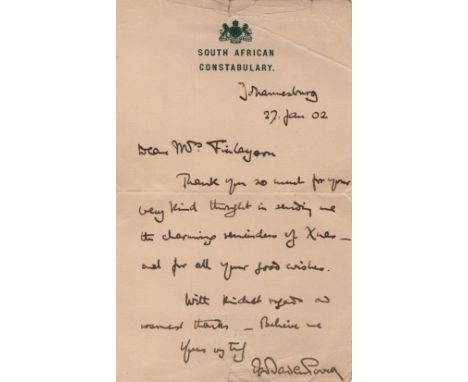 SOUTH AFRICAN
CONSTABULARY.
Johannesburg
27. Jan 02
Dear Mrs Finlayson
Thank you so much for your
very kind thought in sending me
the charming reminders of Xmas –
and for all your good wishes.
With kindest regards and
warmest thanks – Believe me
Yours vy try
R Baden Powell